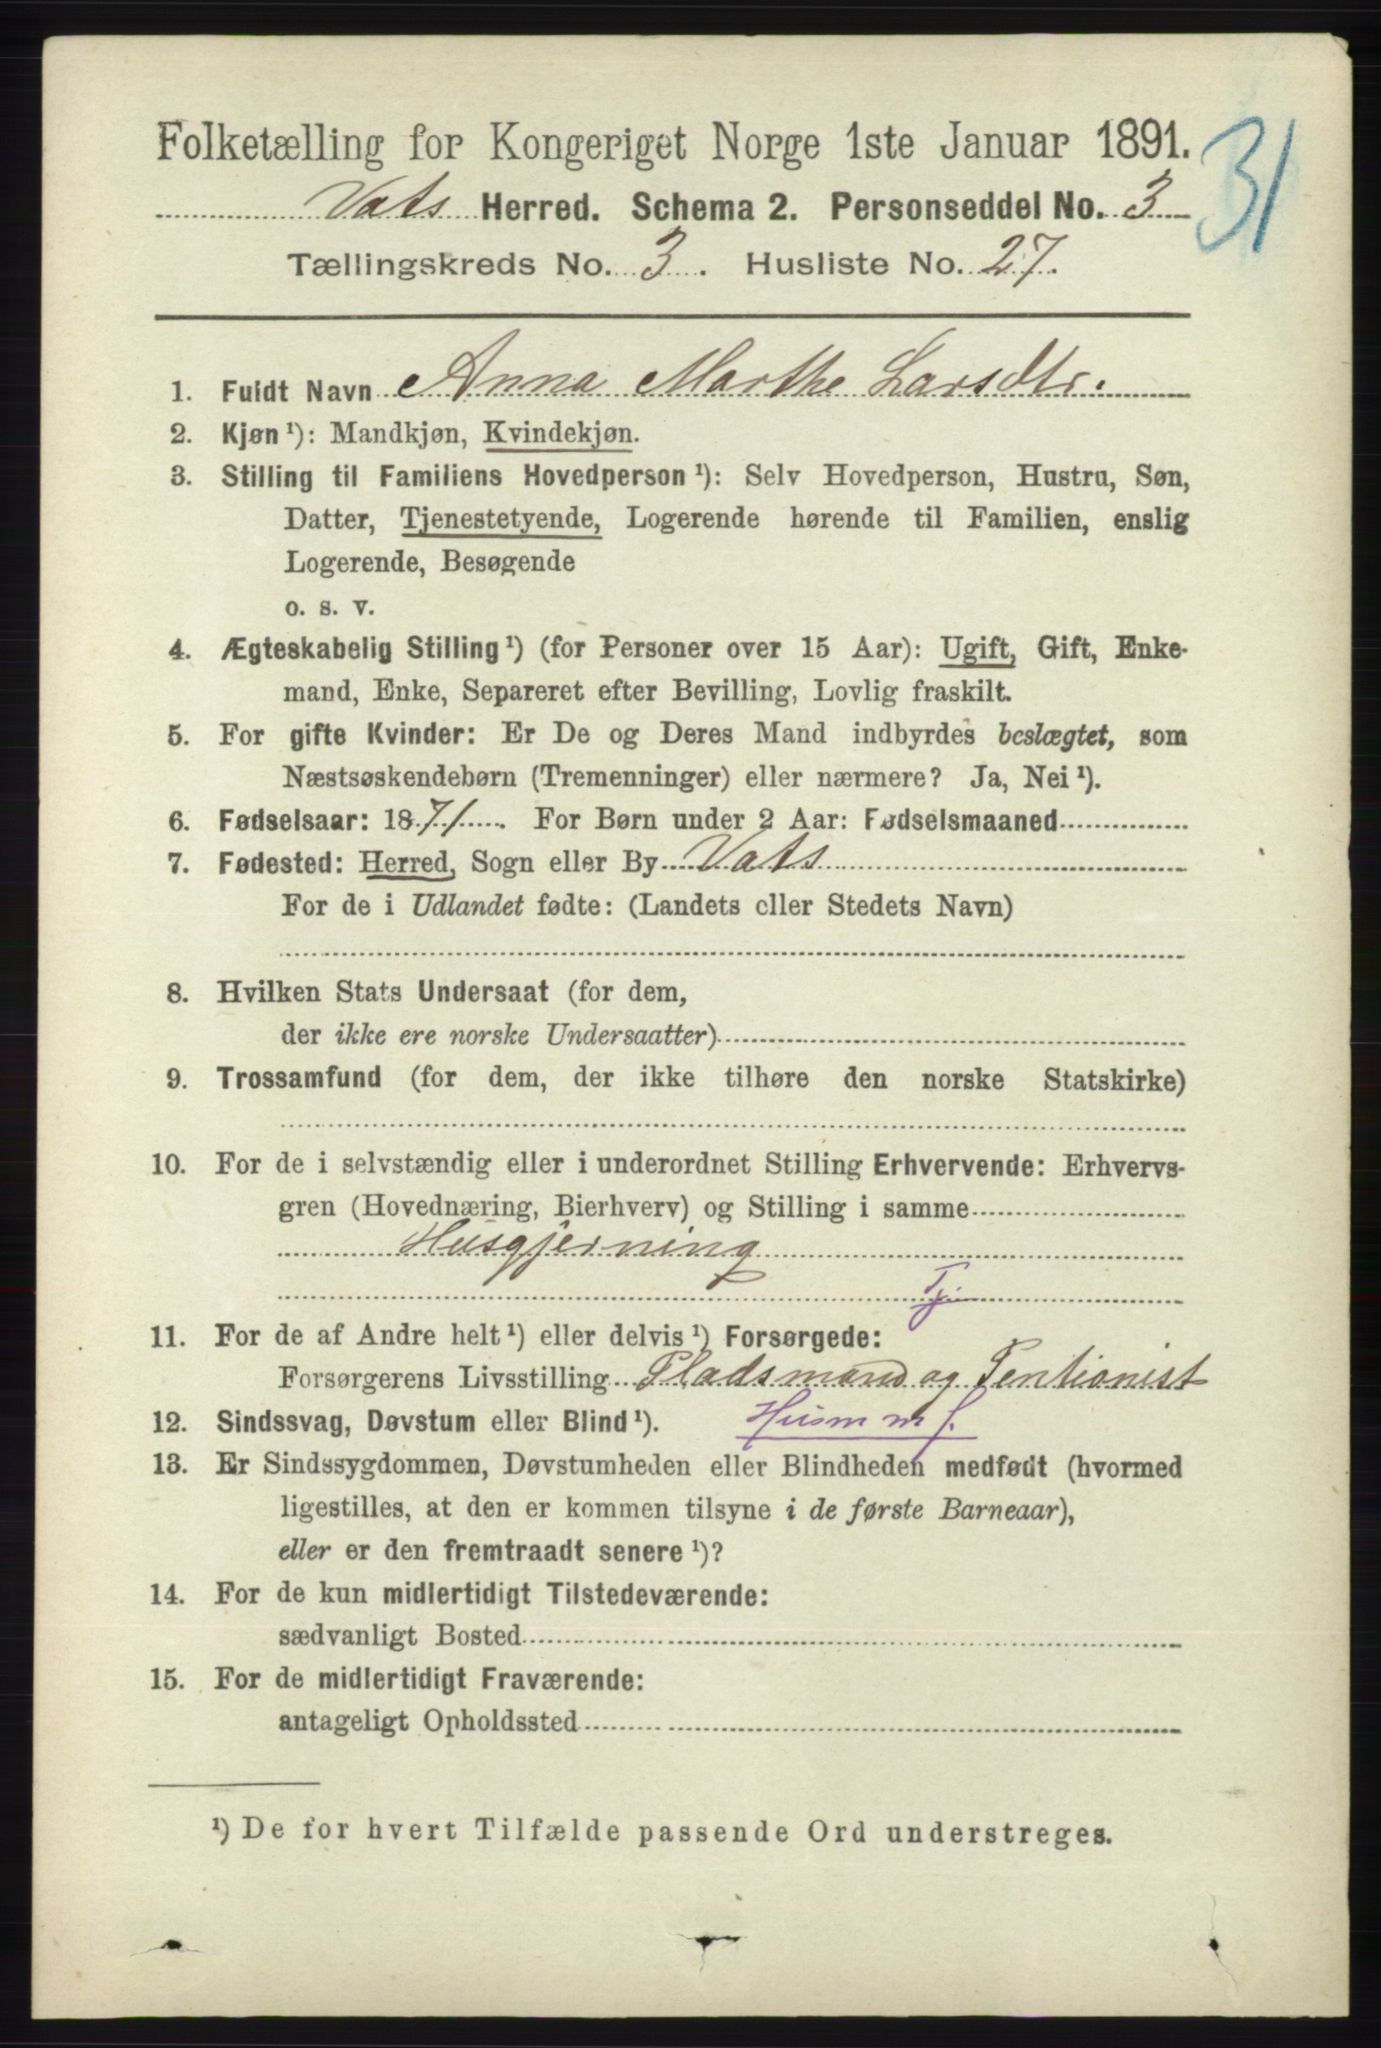 Folketælling for Kongeriget Norge 1ste Januar 1891.
31
Vats Herred. Schema 2. Personseddel No. 3
Tællingskreds No. 3. Husliste No. 27.
1. Fuldt Navn Anna Marthe Larsdtr.
2. Kjøn ¹): Mandkjøn, Kvindekjøn.
3. Stilling til Familiens Hovedperson ¹): Selv Hovedperson, Hustru, Søn,
Datter, Tjenestetyende, Logerende hørende til Familien, enslig
Logerende, Besøgende
o. s. v.
4. Ægteskabelig Stilling ¹) (for Personer over 15 Aar): Ugift, Gift, Enke-
mand, Enke, Separeret efter Bevilling, Lovlig fraskilt.
5. For gifte Kvinder: Er De og Deres Mand indbyrdes beslægtet, som
Næstsøskendebørn (Tremenninger) eller nærmere? Ja, Nei ¹).
6. Fødselsaar: 1871. For Børn under 2 Aar: Fødselsmaaned
7. Fødested: Herred, Sogn eller By Vats
For de i Udlandet fødte: (Landets eller Stedets Navn)
8. Hvilken Stats Undersaat (for dem,
der ikke ere norske Undersaatter)
9. Trossamfund (for dem, der ikke tilhøre den norske Statskirke)
10. For de i selvstændig eller i underordnet Stilling Erhvervende: Erhvervs-
gren (Hovednæring, Bierhverv) og Stilling i samme
Husgjerning
Tj.
11. For de af Andre helt ¹) eller delvis ¹) Forsørgede:
Forsørgerens Livsstilling Pladsmand og Pentionist
12. Sindssvag, Døvstum eller Blind ¹). Husm m f.
13. Er Sindssygdommen, Døvstumheden eller Blindheden medfødt (hvormed
ligestilles, at den er kommen tilsyne i de første Barneaar),
eller er den fremtraadt senere ¹)?
14. For de kun midlertidigt Tilstedeværende:
sædvanligt Bosted
15. For de midlertidigt Fraværende:
antageligt Opholdssted
¹) De for hvert Tilfælde passende Ord understreges.